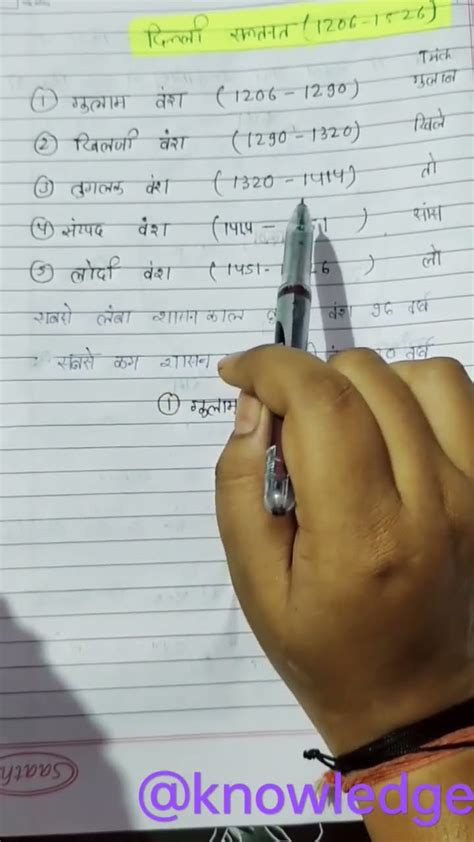 दिल्ली सल्तनत (1206-1526)
ट्रिक
① गुलाम वंश (1206-1290) गुलाब
② खिलजी वंश (1290-1320) खिले
③ तुगलक वंश (1320-1414) तो
④ सैय्यद वंश (1414-
⑤ लोदी वंश (1451- 6) लो
सबसे लंबा शासन काल वंश 96 वर्ष
सबसे कम शासन वर्ष
① गुलाम
Saath
@knowledge